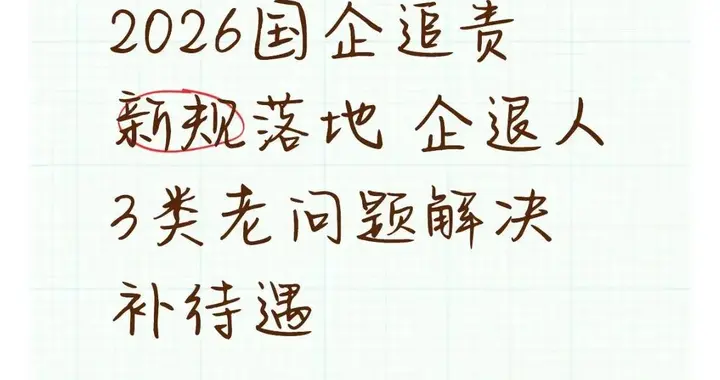 2026国企追责
新规落地 企退人
3类老问题解决
补待遇